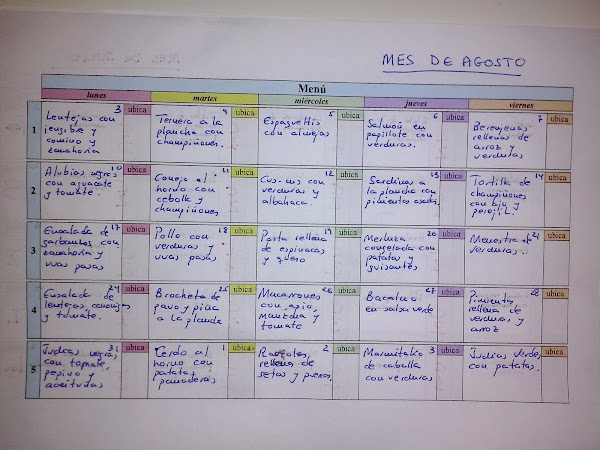 MES DE AGOSTO
Menú
lunes martes miércoles jueves viernes
1
3 ubica
Lentejas con
jengibre y
comino y
zanahoria
4 ubica
Ternera a la
plancha con
champiñones.
5 ubica
Espaguettis
con almejas
6 ubica
Salmón en
papillote con
verduras.
7 ubica
Berenjenas
rellenas de
arroz y
verduras
2
10 ubica
Alubias negras
con aguacate
y tomate
11 ubica
Conejo al
horno con
cebolla y
champiñones
12 ubica
Cus-cus con
verduras y
albahaca.
13 ubica
Sardinas a
la plancha con
pimientos asados.
14 ubica
Tortilla de
champiñones
con ajo y
perejil.
3
17 ubica
Ensalada de
garbanzos con
zanahoria y
uvas pasas
18 ubica
Pollo con
verduras y
uvas pasas
19 ubica
Pasta rellena
de espinacas
y queso
20 ubica
Merluza
congelada con
patatas y
guisantes
21 ubica
Menestra de
verduras.
4
24 ubica
Ensalada de
lentejas, canonigos
y tomate.
25 ubica
Brocheta de
pavo y piña
a la plancha
26 ubica
Macarrones
con apio,
manzana y
tomate
27 ubica
Bacalao
en salsa verde
28 ubica
Pimientos
rellenos de
verduras y
arroz
5
31 ubica
Judías negras,
con tomate,
pepino y
aceitunas
1 ubica
Cerdo al
horno con
patatas
panaderas
2 ubica
rellenos de
setas y puerros.
3 ubica
Marmitako
de caballa
con verduras
ubica
Judías verdes
con patatas.